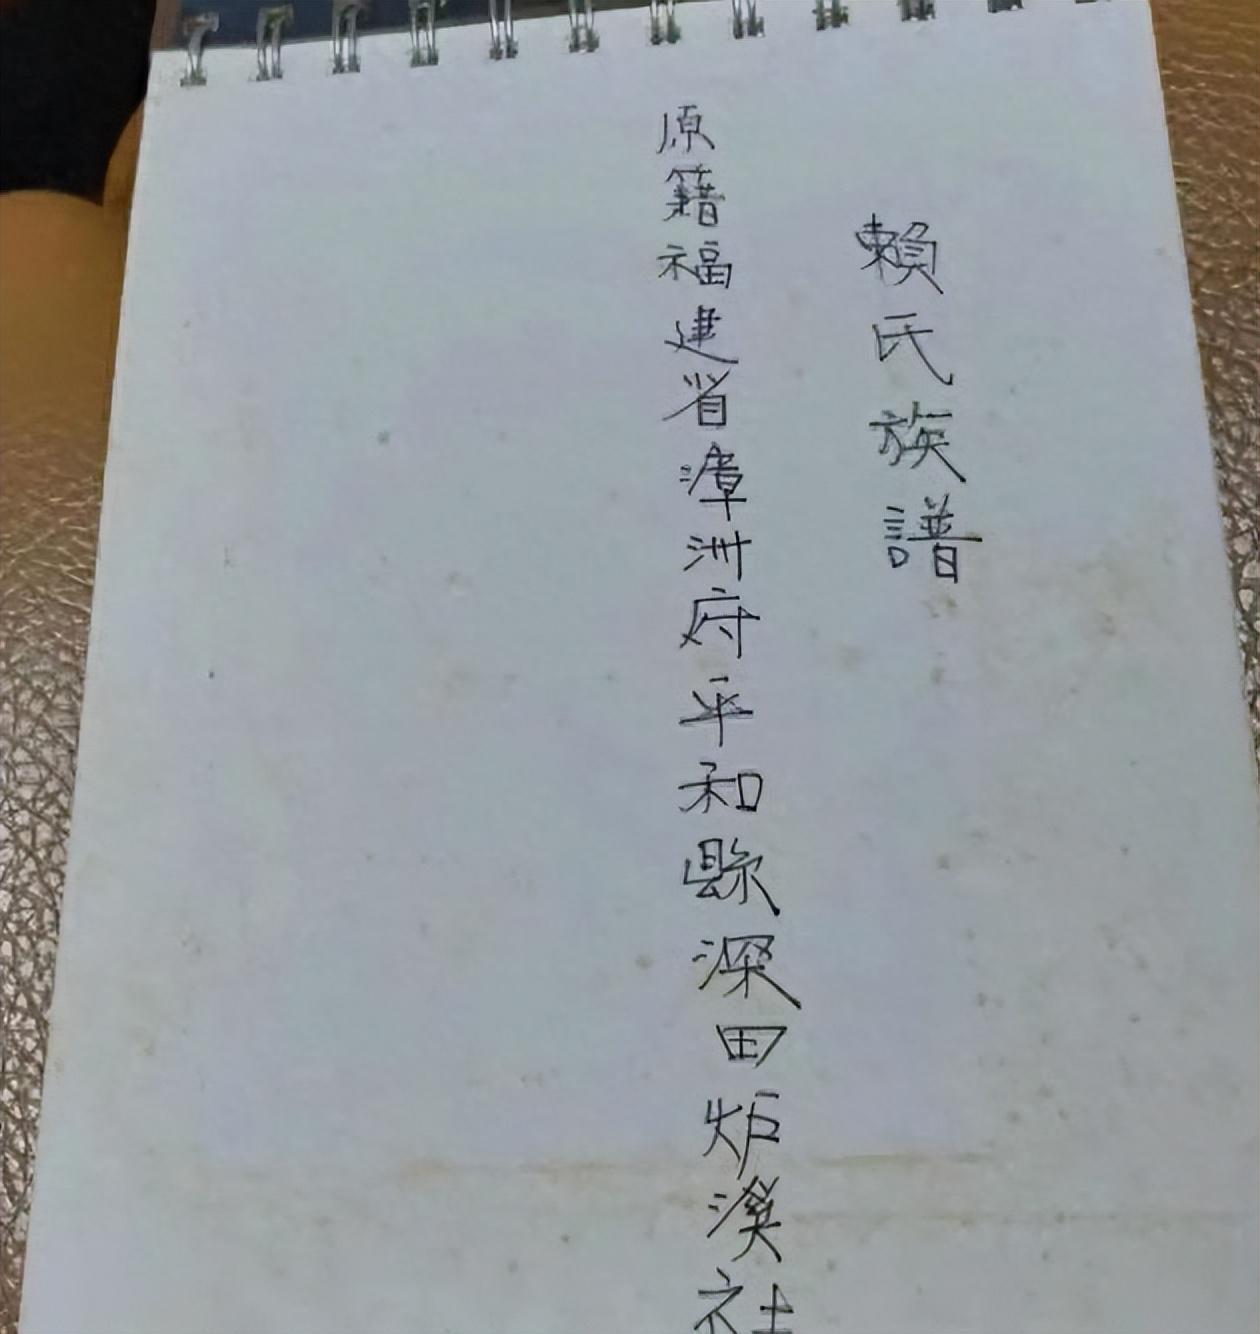 賴氏族譜
原籍福建省漳洲府平和縣深田炉溪社